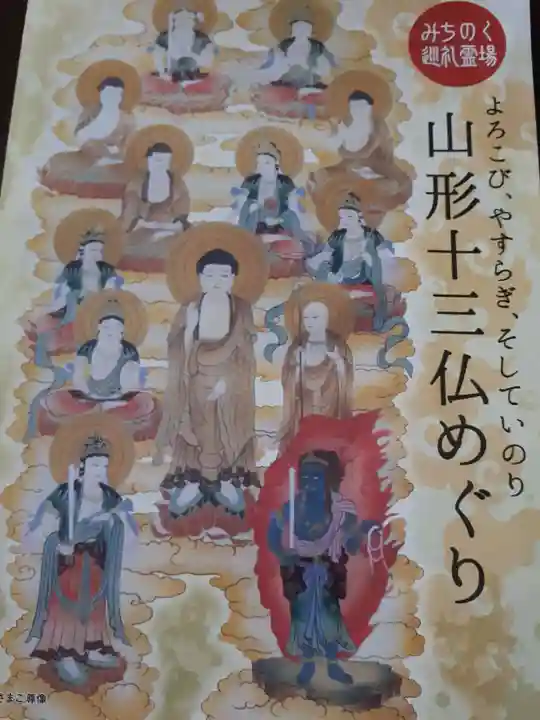 みちのく
巡礼霊場
よろこび、やすらぎ、そしていのり
山形十三仏めぐり
さまご尊像